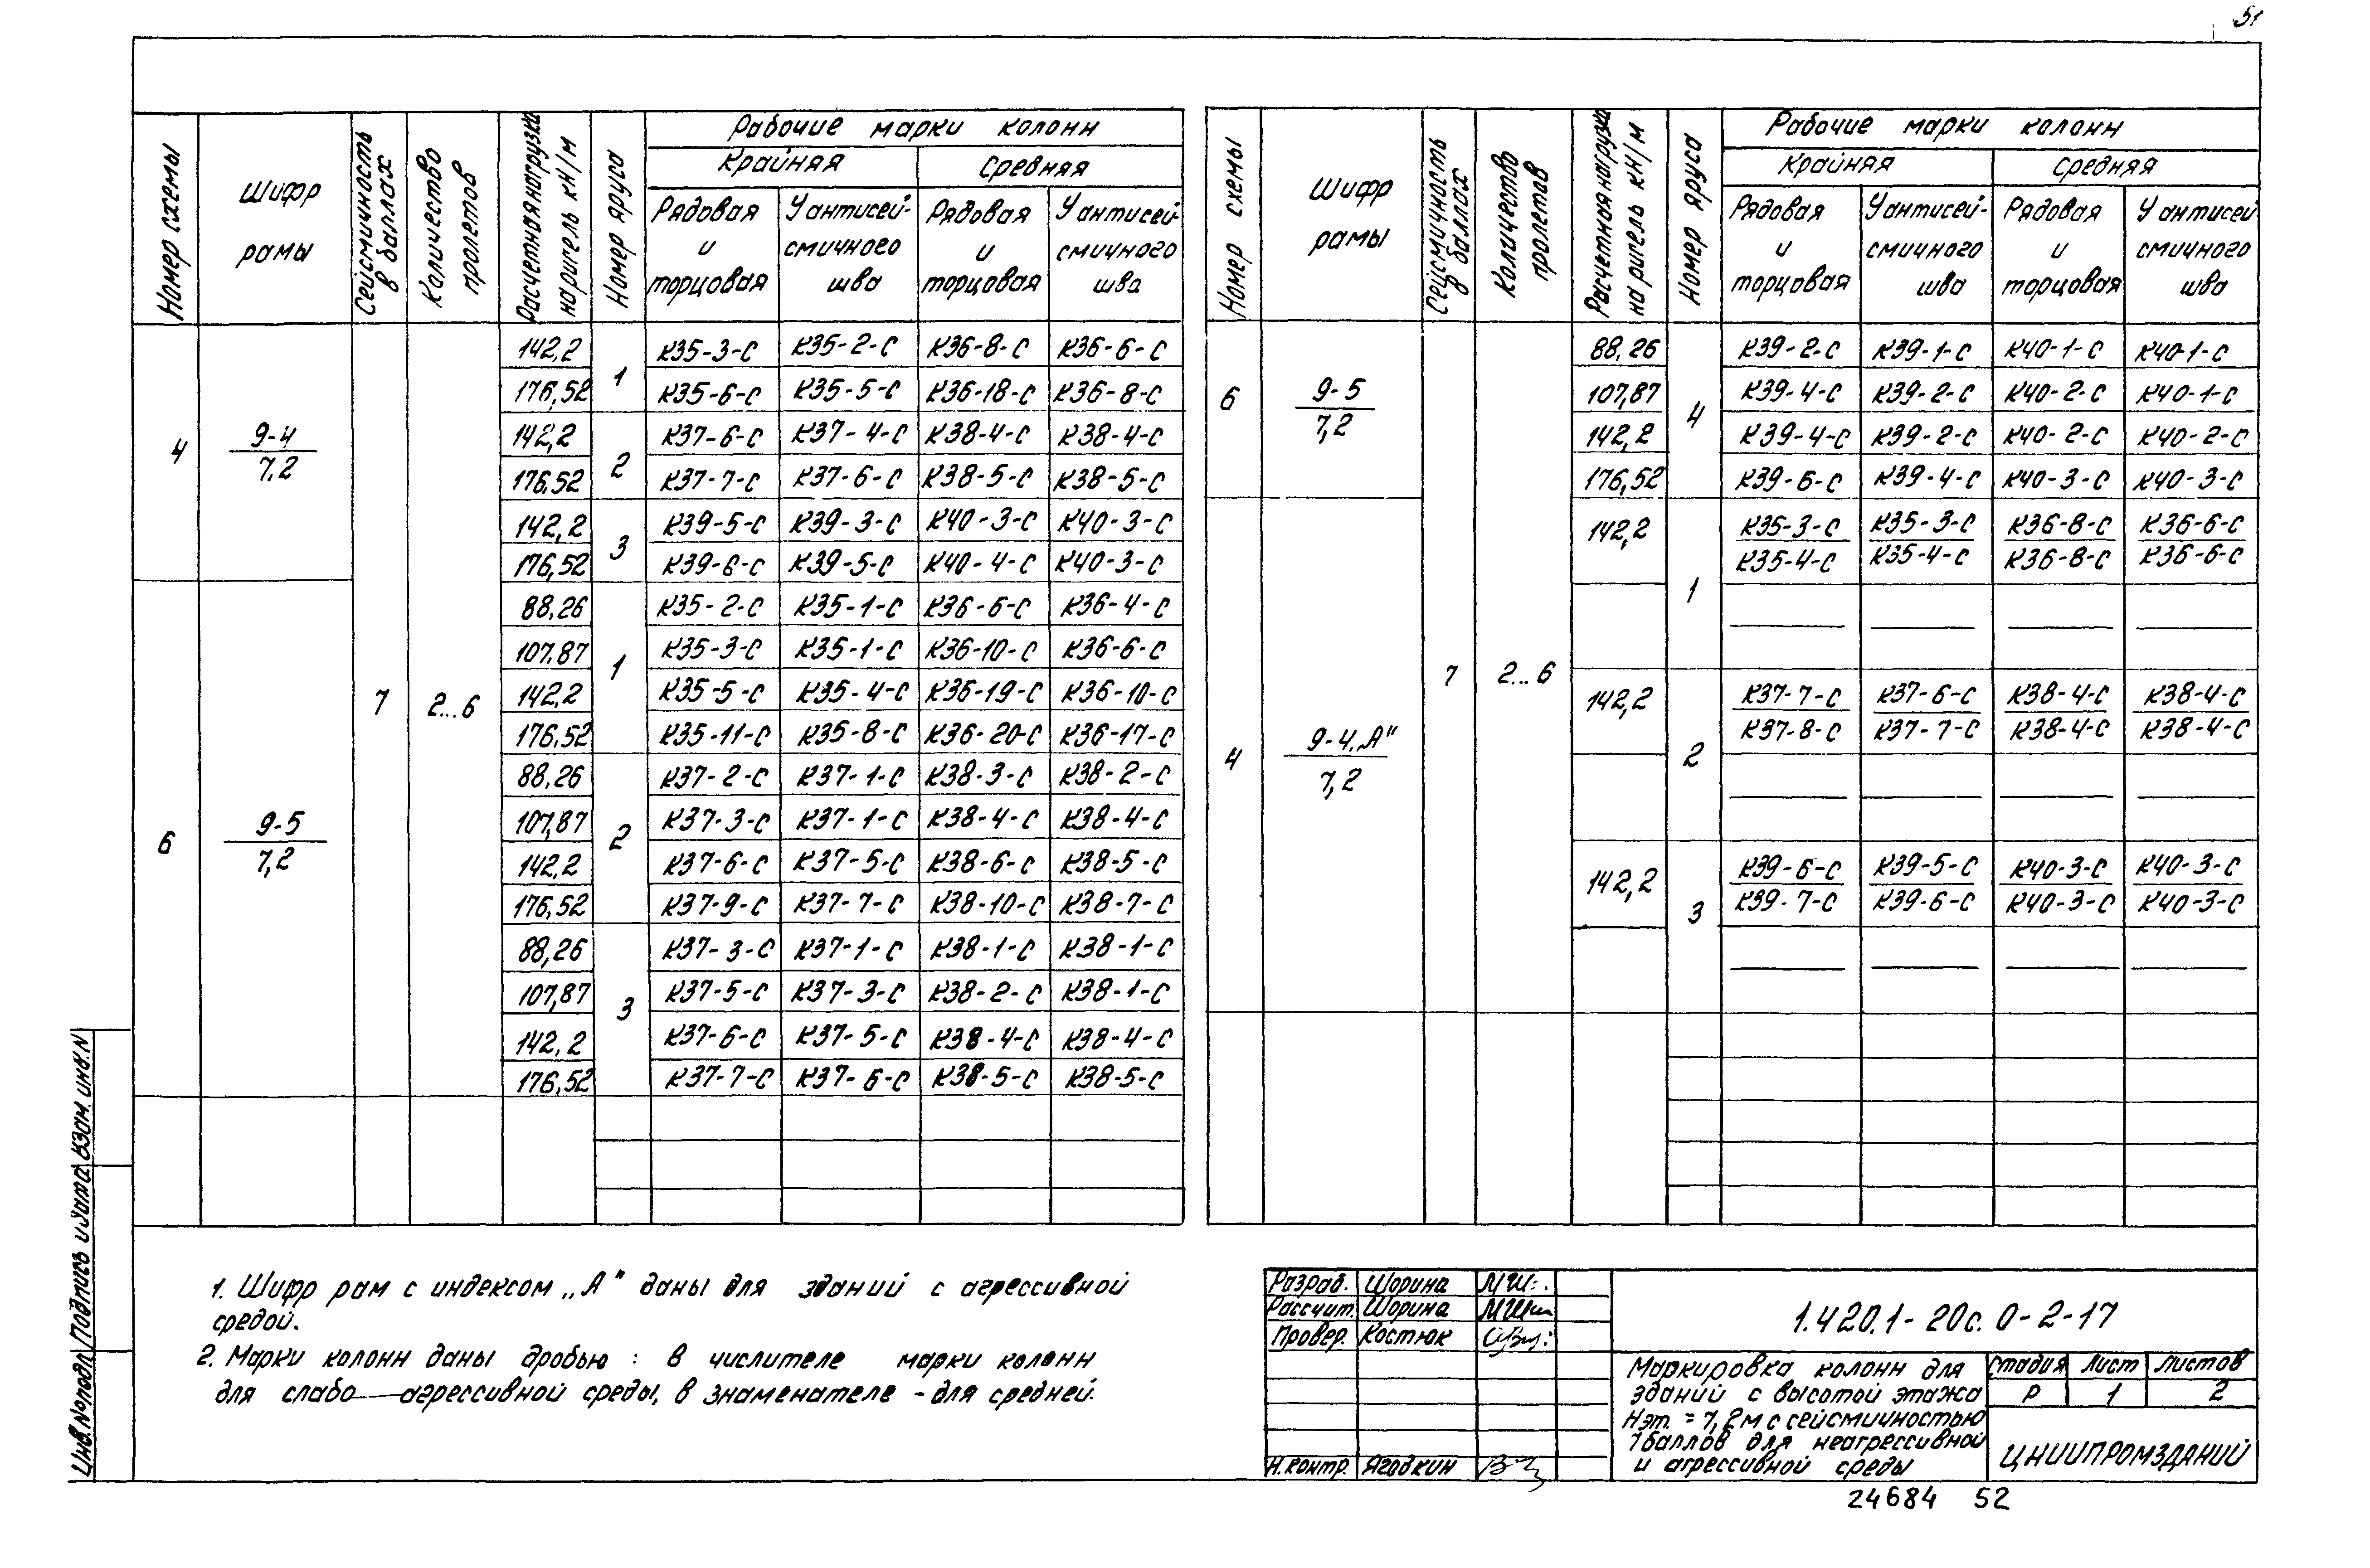 51
Номер схемы
Шифр рамы
Сейсмичность в баллах
Количество пролетов
Расчетная нагрузка на ригель кН/м
Номер яруса
Рабочие марки колонн
Крайняя
Средняя
Рядовая и торцовая
У антисейсмичного шва
Рядовая и торцовая
У антисейсмичного шва
4 9-4/7,2 7 2...6
142,2 1 К35-3-С К35-2-С К36-8-С К36-6-С
176,52 К35-6-С К35-5-С К36-18-С К36-8-С
142,2 2 К37-6-С К37-4-С К38-4-С К38-4-С
176,52 К37-7-С К37-6-С К38-5-С К38-5-С
142,2 3 К39-5-С К39-3-С К40-3-С К40-3-С
176,52 К39-6-С К39-5-С К40-4-С К40-3-С
6 9-5/7,2
88,26 1 К35-2-С К35-1-С К36-6-С К36-4-С
107,87 К35-3-С К35-1-С К36-10-С К36-6-С
142,2 К35-5-С К35-4-С К36-19-С К36-10-С
176,52 К35-11-С К35-8-С К36-20-С К36-17-С
88,26 2 К37-2-С К37-1-С К38-3-С К38-2-С
107,87 К37-3-С К37-1-С К38-4-С К38-4-С
142,2 К37-6-С К37-5-С К38-6-С К38-5-С
176,52 К37-9-С К37-7-С К38-10-С К38-7-С
88,26 3 К37-3-С К37-1-С К38-1-С К38-1-С
107,87 К37-5-С К37-3-С К38-2-С К38-1-С
142,2 К37-6-С К37-5-С К38-4-С К38-4-С
176,52 К37-7-С К37-6-С К38-5-С К38-5-С
Номер схемы
Шифр рамы
Сейсмичность в баллах
Количество пролетов
Расчетная нагрузка на ригель кН/м
Номер яруса
Рабочие марки колонн
Крайняя
Средняя
Рядовая и торцовая
У антисейсмичного шва
Рядовая и торцовая
У антисейсмичного шва
6 9-5/7,2 7 2...6
88,26 4 К39-2-С К39-1-С К40-1-С К40-1-С
107,87 К39-4-С К39-2-С К40-2-С К40-1-С
142,2 К39-4-С К39-2-С К40-2-С К40-2-С
176,52 К39-6-С К39-4-С К40-3-С К40-3-С
4 9-4„А"/7,2
142,2 1 К35-3-С К35-3-С К36-8-С К36-6-С
К35-4-С К35-4-С К36-8-С К36-6-С
— — — —
142,2 2 К37-7-С К37-6-С К38-4-С К38-4-С
К37-8-С К37-7-С К38-4-С К38-4-С
— — — —
142,2 3 К39-6-С К39-5-С К40-3-С К40-3-С
К39-7-С К39-6-С К40-3-С К40-3-С
— — — —
1. Шифр рам с индексом „А" даны для зданий с агрессивной
средой.
2. Марки колонн даны дробью: в числителе марки колонн
для слабо—агрессивной среды, в знаменателе - для средней.
Разраб. Шорина
Рассчит. Шорина
Провер. Костюк
Н.контр. Ягодкин
1.420.1-20с. 0-2-17
Маркировка колонн для
зданий с высотой этажа
Нэт. = 7,2м с сейсмичностью
7 баллов для неагрессивной
и агрессивной среды
Стадия Лист Листов
Р 1 2
ЦНИИПРОМЗДАНИЙ
24684 52
Инв. № подл. Подпись и дата Взам. инв. N